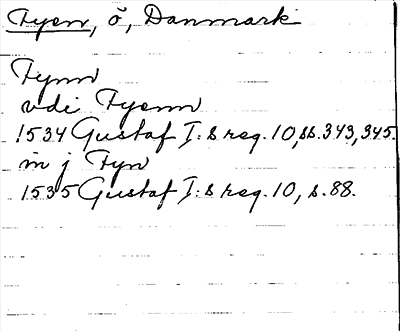 Fyen, ö, Danmark
Fynn
vdi Fyenn
1534 Gustaf I:s reg. 10, ss. 343, 345.
in j Fyn
1535 Gustaf I:s reg. 10, s. 88.